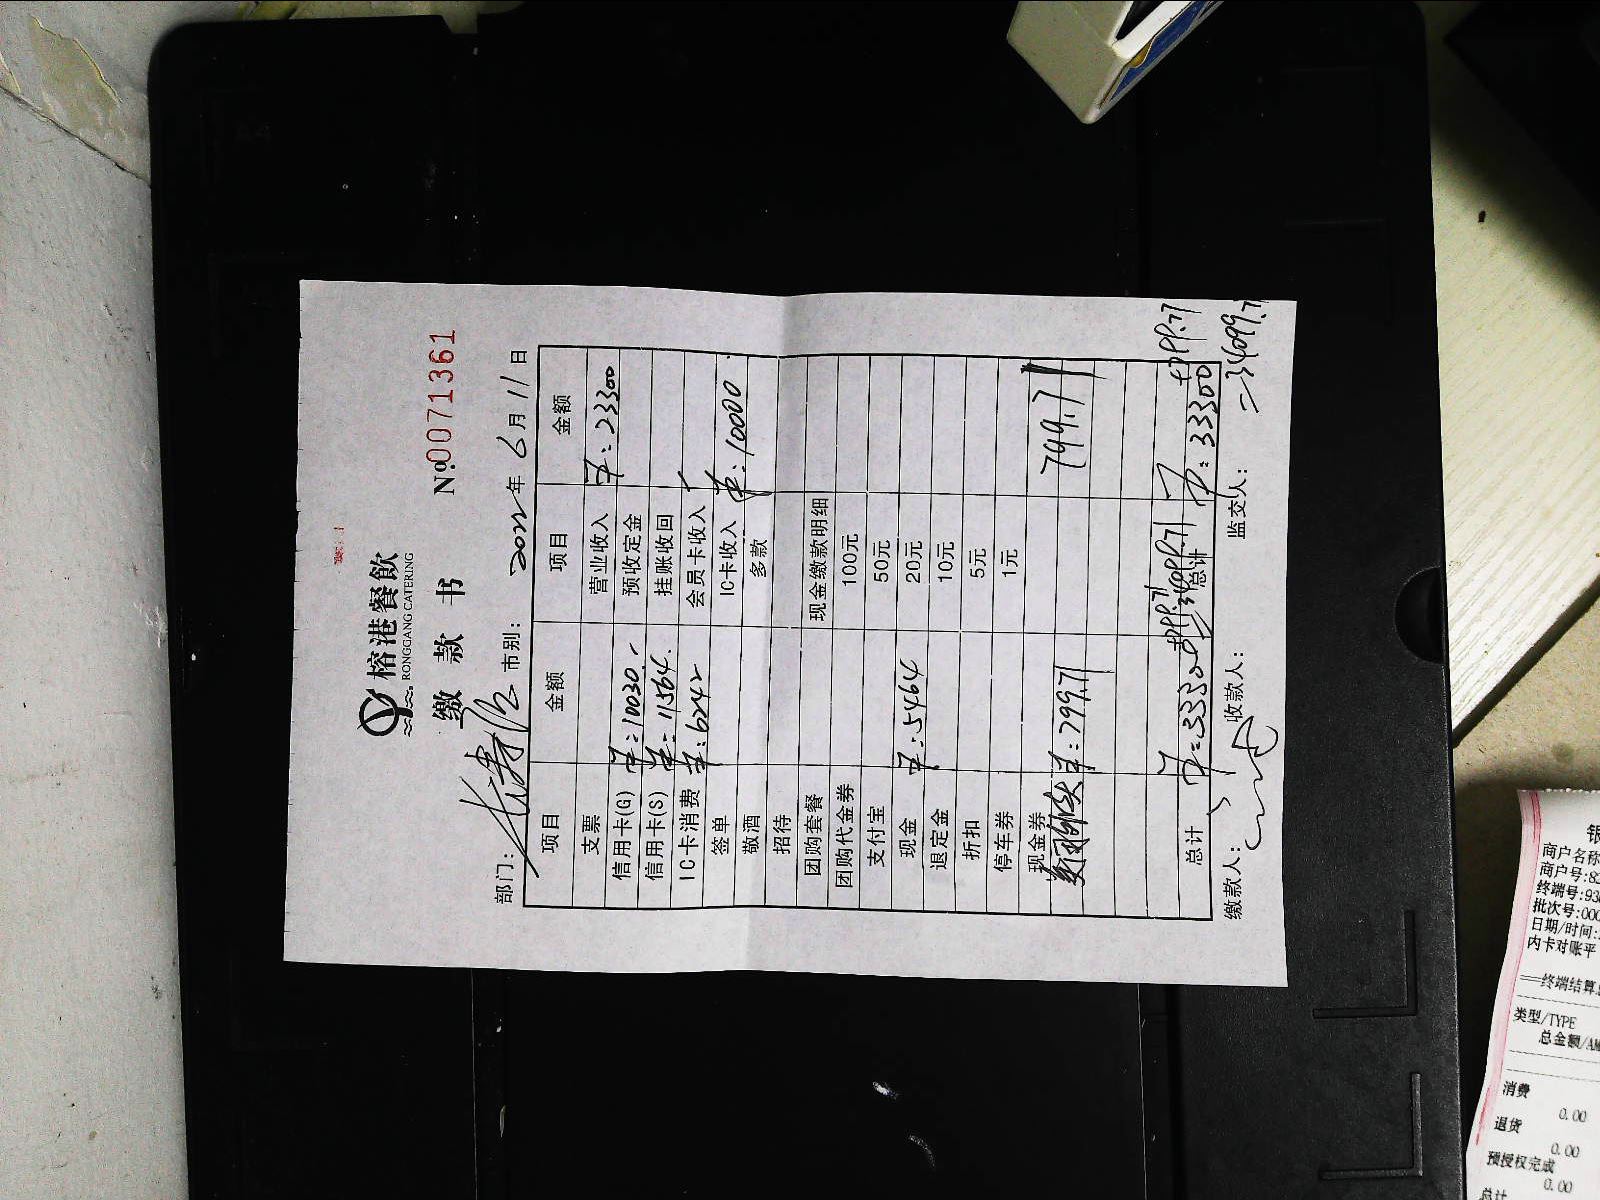 榕港餐飲
RONGGANG CATERING
缴 款 书 №0071361
部门: 市别: 2022年 6月 11日
项目 金额 项目 金额
支票 营业收入 平:23300
信用卡(G) 平:10030.- 预收定金
信用卡(S) 平:11564. 挂账收回
IC卡消费 平:6242 会员卡收入
签单 IC卡收入 平:10000.
敬酒 多款
招待
团购套餐 现金缴款明细
团购代金券 100元
支付宝 50元
现金 平:5464 20元
退定金 10元
折扣 5元
停车券 1元
现金券
平:799.71 799.71
+799.71 +799.71
总计 平:33300 =34099.71 总计 平:33300
缴款人: 收款人: 监交人: =34099.71
商户名称
商户号:8
终端号:93
批次号:000
日期/时间:
内卡对账平
终端结算
类型/TYPE
总金额/AM
消费
0.00
退货
0.00
预授权完成
0.00
总计